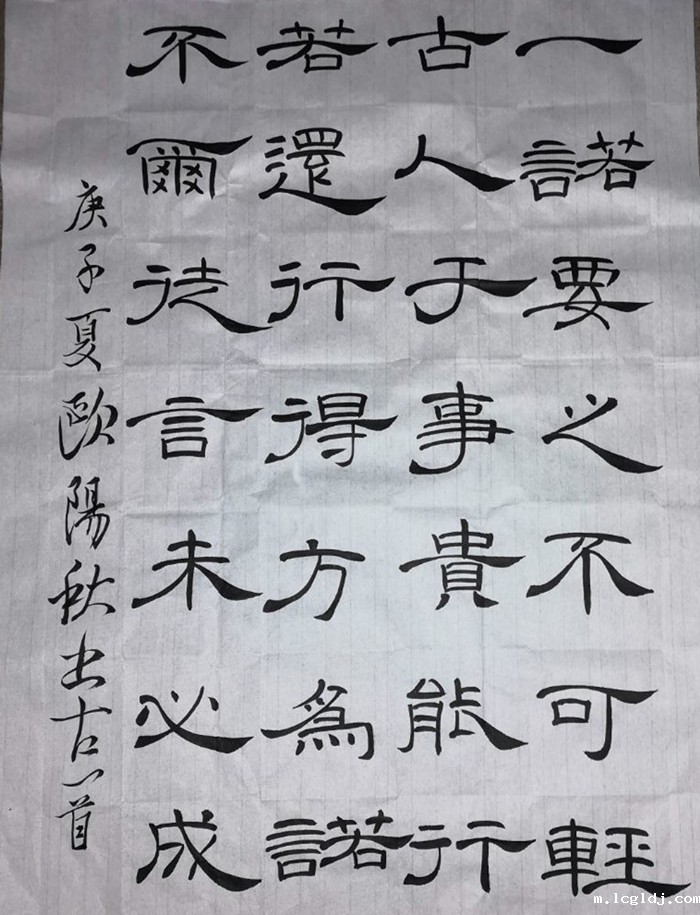 一諾要之不可輕
古人于事貴能行
若還行得方為諾
不爾徒言未必成
庚子夏歐陽秋书古一首
m.lcgldj.com